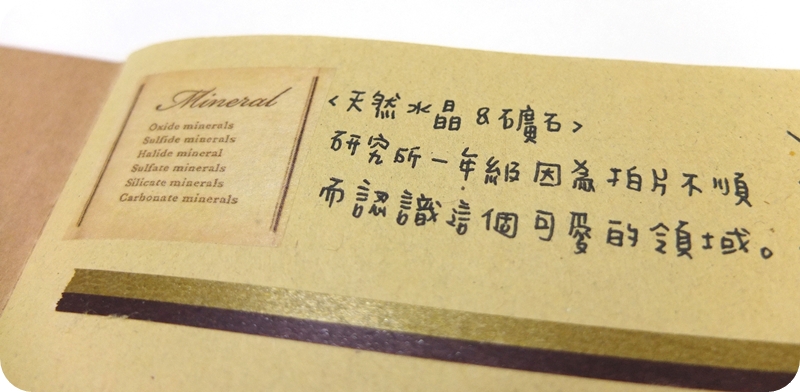 Mineral
Oxide minerals
Sulfide minerals
Halide mineral
Sulfate minerals
Silicate minerals
Carbonate minerals
<天然水晶&石礦石>
研究所一年級因為拍片不順
而認識這個可愛的領域。